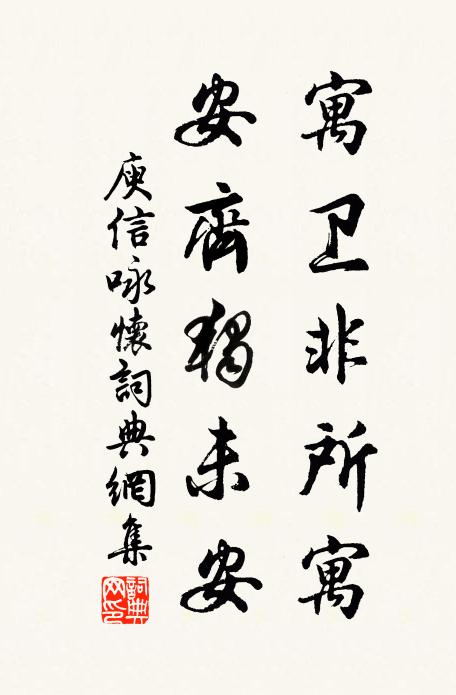 寓卫非所寓
安齊獨未安
庾信咏懷詞典網集
詞典
网印